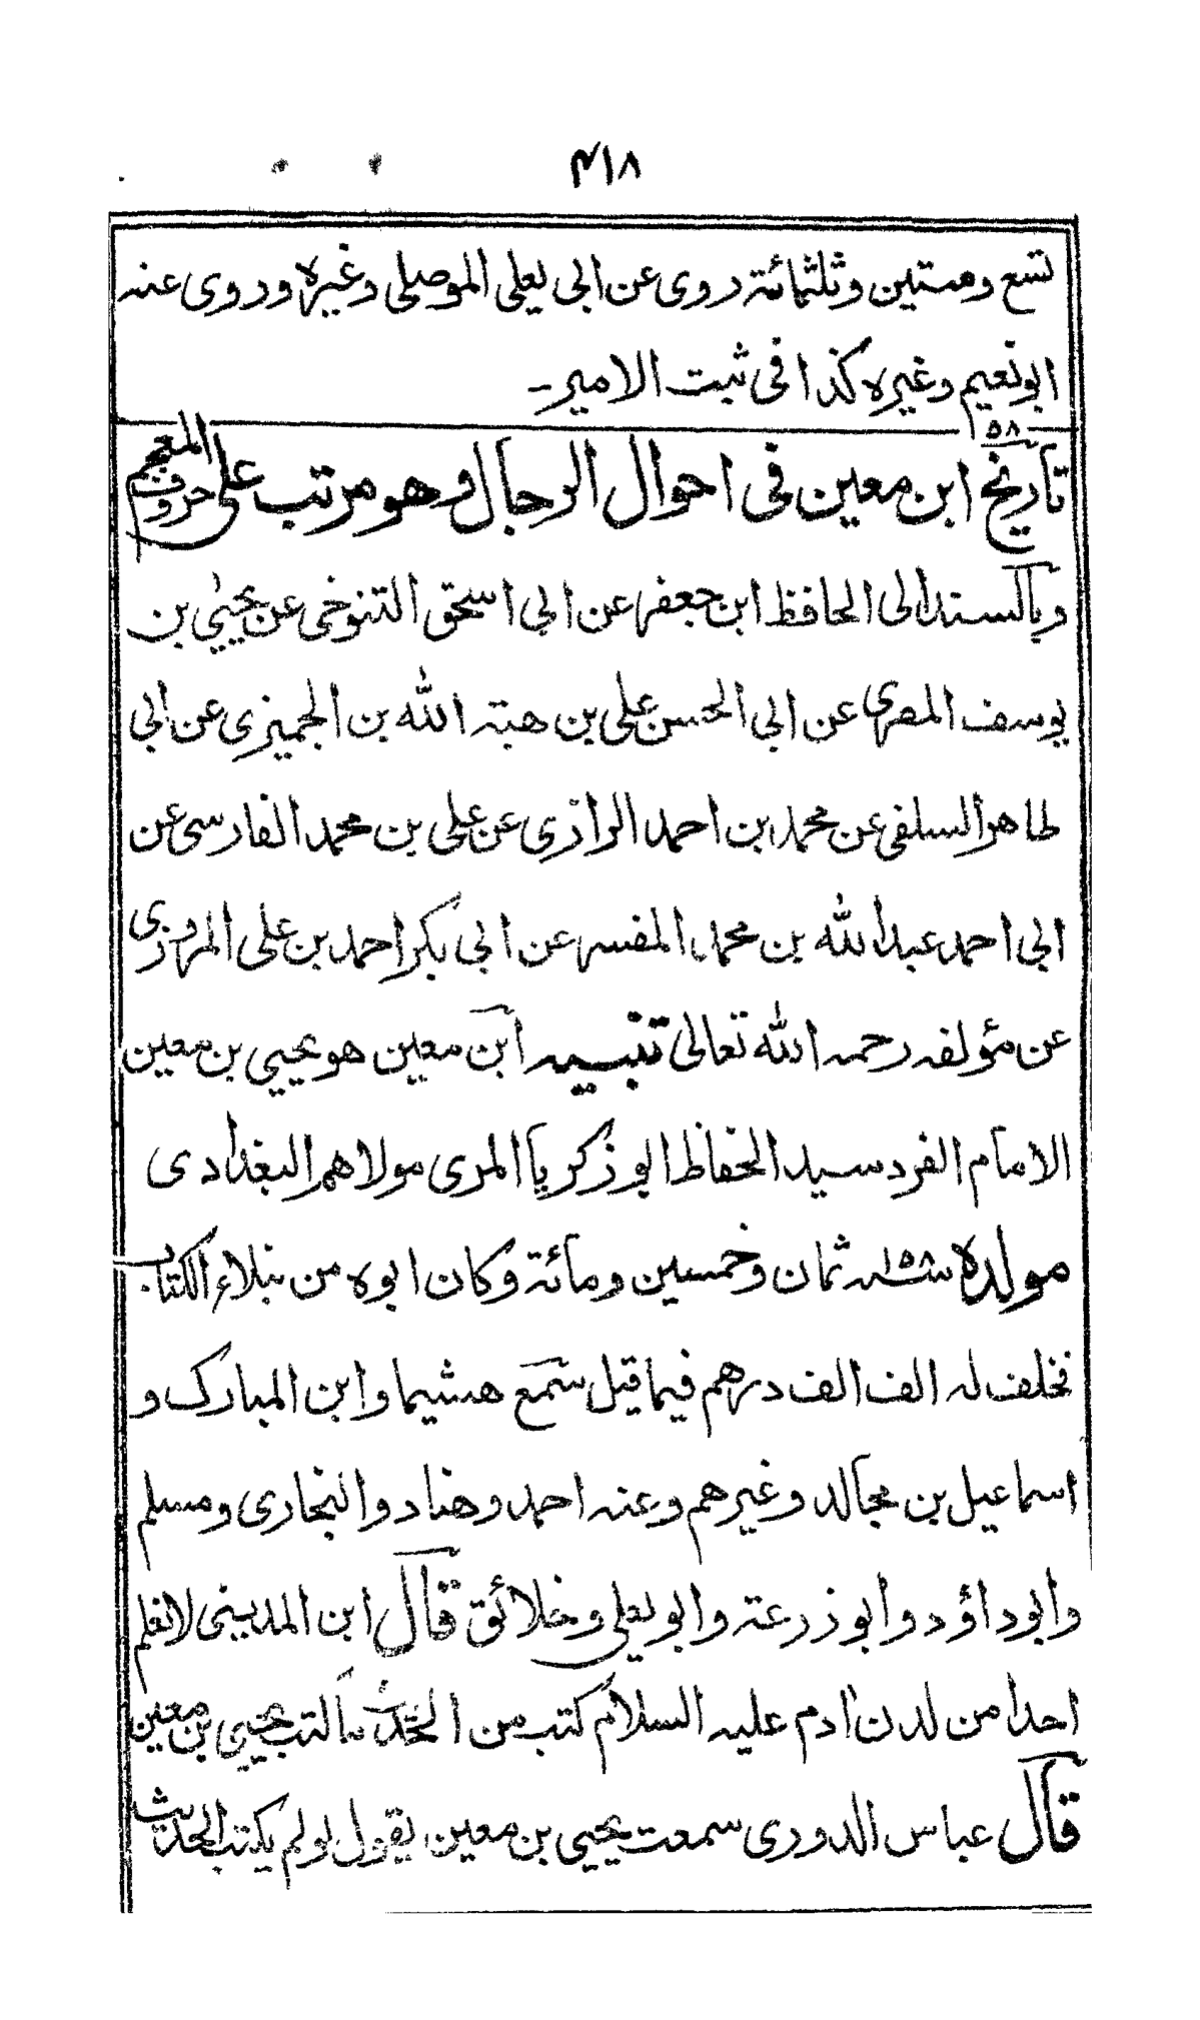 ٤١٨
تسع وستين وثلثمائة روى عن ابى يعلى الموصلى وغيره وروى عنه
ابو نعيم وغيره كذا فى ثبت الامير ـ
٥٨
تاريخ ابن معين فى احوال الرجال وهو مرتب على حروف المعجم
وبالسند الى الحافظ ابن جعفر عن ابى اسحق التنوخى عن يحيىٰ بن
يوسف المصرى عن ابى الحسن على بن هبة الله بن الجميزى عن ابى
طاهر السلفى عن محمد ابن احمد الرازى عن على بن محمد الفارسى عن
ابى احمد عبد الله بن محمد المفسر عن ابى بكر احمد بن على المروزى
عن مؤلفه رحمه الله تعالى تنبيه ابن معين هو يحيى بن معين
الامام الفرد سيد الحفاظ ابو زكريا المرى مولاهم البغدادى
مولده سنة ١٥٨ ثمان وخمسين ومائة وكان ابوه من نبلاء الكتاب
فخلف له الف الف درهم فيما قيل سمع هشيما وابن المبارك و
اسماعيل بن مجالد وغيرهم وعنه احمد وهناد والبخارى ومسلم
وابوداؤد وابو زرعة وابو يعلى وخلائق قال ابن المدينى لا نعلم
احدا من لدن ادم عليه السلام كتب من الحديث ما كتب يحيى بن معين
قال عباس الدورى سمعت يحيى بن معين يقول لو لم يكتب الحديث